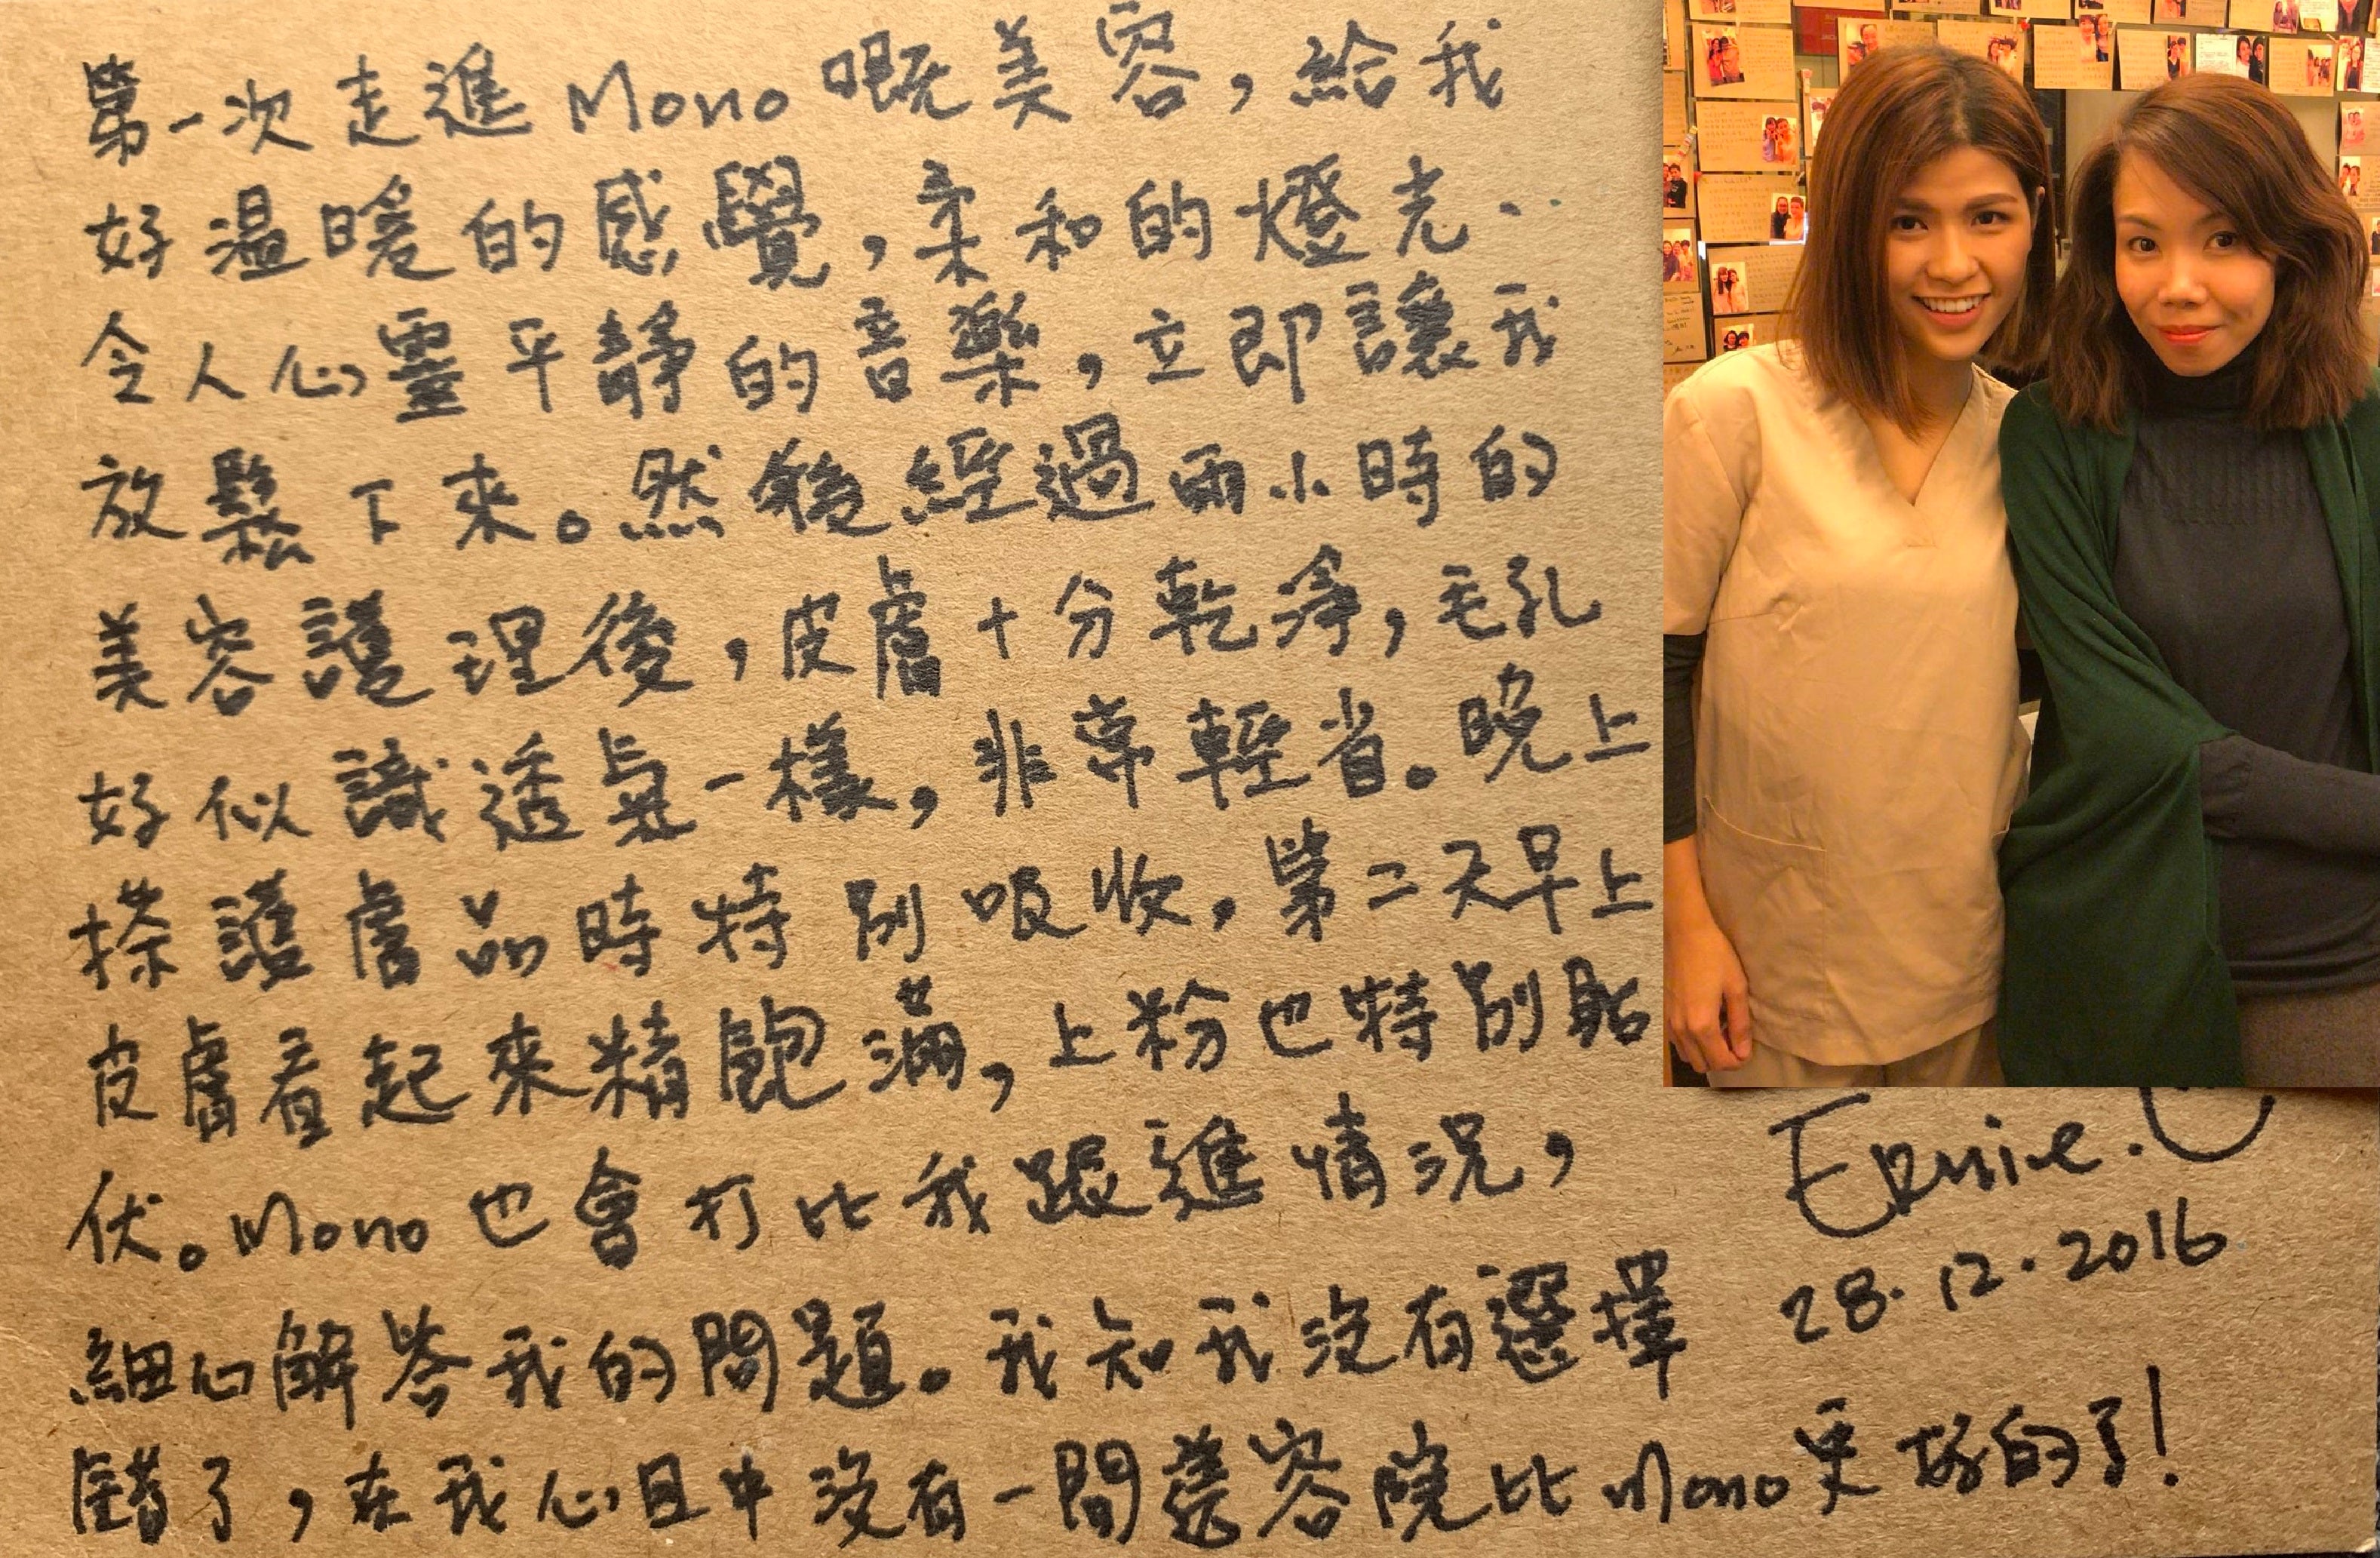 第一次走進 Mono 嘅美容，給我
好溫暖的感覺，柔和的燈光..
令人心靈平靜的音樂，立即讓我
放鬆下來。然後經過兩小時的
美容護理後，皮膚十分乾淨，毛孔
好似識透氣一樣，非常輕省。晚上
搽護膚品時特別吸收，第二天早上
皮膚看起來精飽滿，上粉也特別貼
伏。Mono 也會打比我跟進情況，
細心解答我的問題。我知我沒有選擇
錯了，在我心目中沒有一間美容院比 Mono 更好的了！
Ernie.
28.12.2016